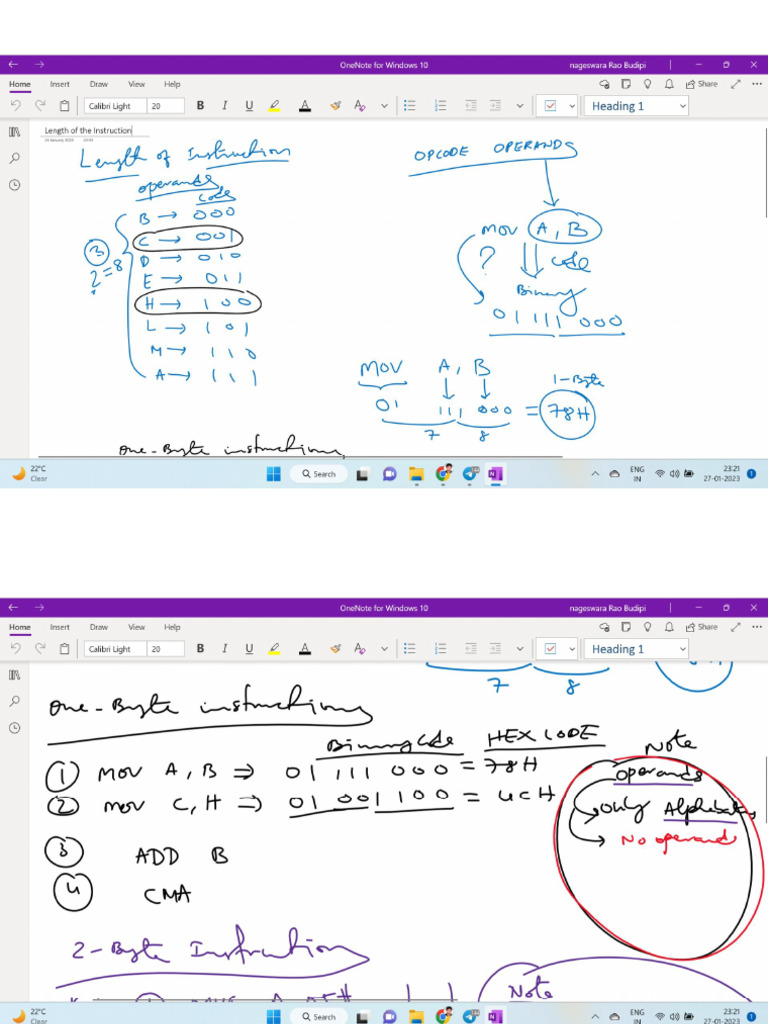 OneNote for Windows 10
nageswara Rao Budipi
Home Insert Draw View Help
Share
Calibri Light 20 B I U A
Heading 1
Length of the Instruction
Length of Instruction
operands
code
B → 000
C → 001
D → 010
E → 011
H → 100
L → 101
M → 110
A → 111
3
2 = 8
OPCODE OPERANDS
MOV A, B
? code
Binary
01 111 000
MOV A, B
01 111 000 = 78H
1-Byte
7 8
One-Byte instructions
22°C
Clear
Search
ENG
IN
23:21
27-01-2023
OneNote for Windows 10
nageswara Rao Budipi
Home Insert Draw View Help
Share
Calibri Light 20 B I U A
Heading 1
7 8
One-Byte instructions
Binary Code HEX CODE
1 MOV A, B ⇒ 01 111 000 = 78H
2 MOV C, H ⇒ 01 001 100 = 4CH
3 ADD B
4 CMA
Note
operands
→ only Alphabets
→ No operand
2-Byte Instructions
Note
22°C
Clear
Search
ENG
IN
23:21
27-01-2023